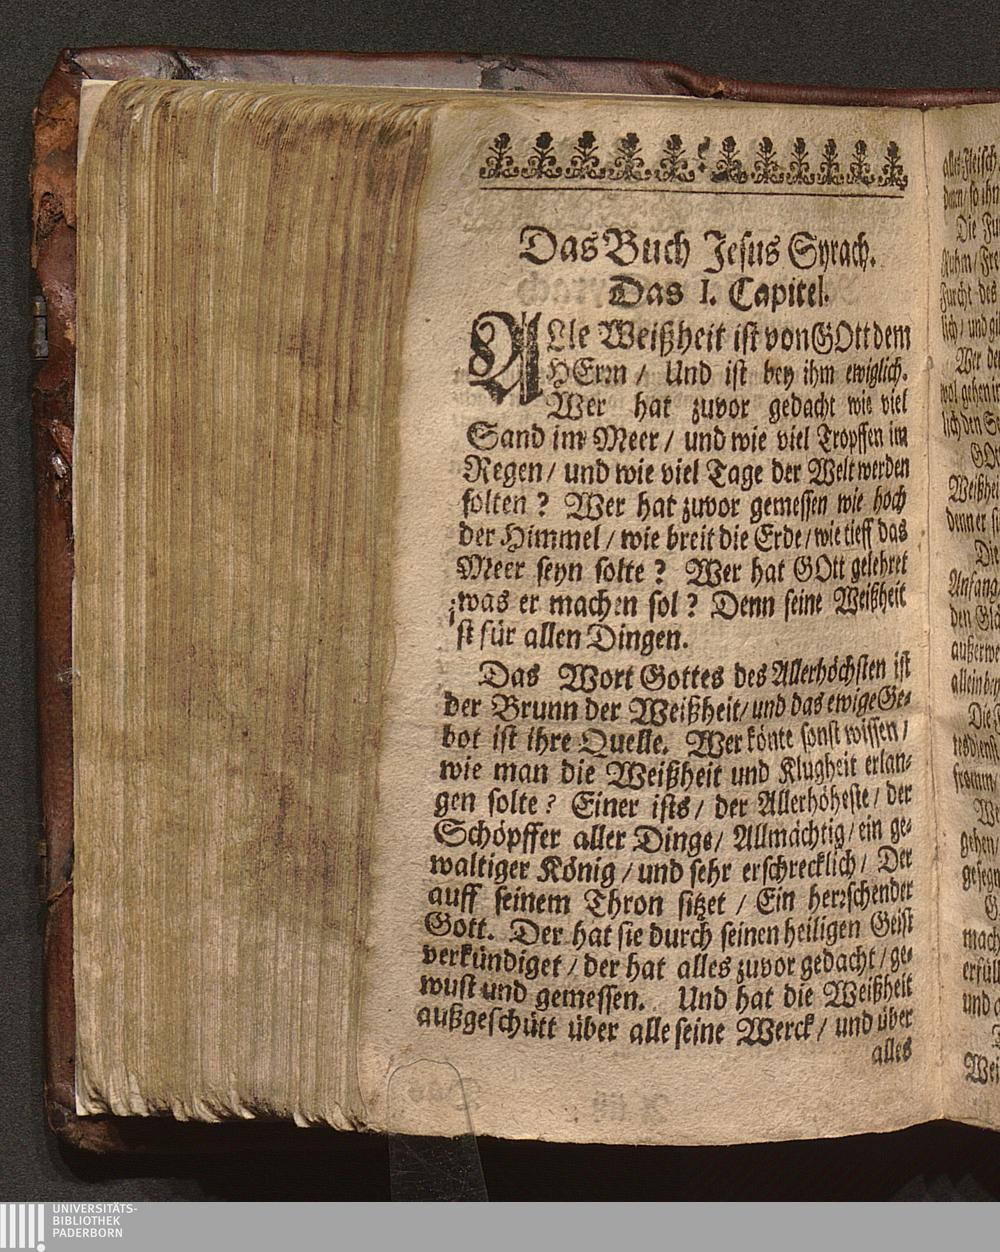 Das Buch Jesus Syrach.
Das I. Capitel.
ALle Weißheit ist von GOtt dem
HErrn / Und ist bey ihm ewiglich.
Wer hat zuvor gedacht wie viel
Sand im Meer / und wie viel Tropffen im
Regen / und wie viel Tage der Welt werden
solten? Wer hat zuvor gemessen wie hoch
der Himmel / wie breit die Erde / wie tieff das
Meer seyn solte? Wer hat GOtt gelehret
was er machen sol? Denn seine Weißheit
ist für allen Dingen.
Das Wort Gottes des Allerhöchsten ist
der Brunn der Weißheit / und das ewige Ge-
bot ist ihre Quelle. Wer könte sonst wissen /
wie man die Weißheit und Klugheit erlan-
gen solte? Einer ists / der Allerhöheste / der
Schöpffer aller Dinge / Allmächtig / ein ge-
waltiger König / und sehr erschrecklich / Der
auff seinem Thron sitzet / Ein herrschender
Gott. Der hat sie durch seinen heiligen Geist
verkündiget / der hat alles zuvor gedacht / ge-
wust und gemessen. Und hat die Weißheit
außgeschütt über alle seine Werck / und über
alles
alles Fleisch
denen / so ihn
Die Fu
Ruhm / Fre
Furcht des
lich / und g
Wer de
wol gehen in
lich den Se
GOt
Weißhei
denn er si
Die
Anfang
den Gla
außerwe
allein bey
Die
tesdienst
fromm /
We
gehen /
gesegn
G
mach
erfüll
und a
Wei
UNIVERSITÄTS-
BIBLIOTHEK
PADERBORN